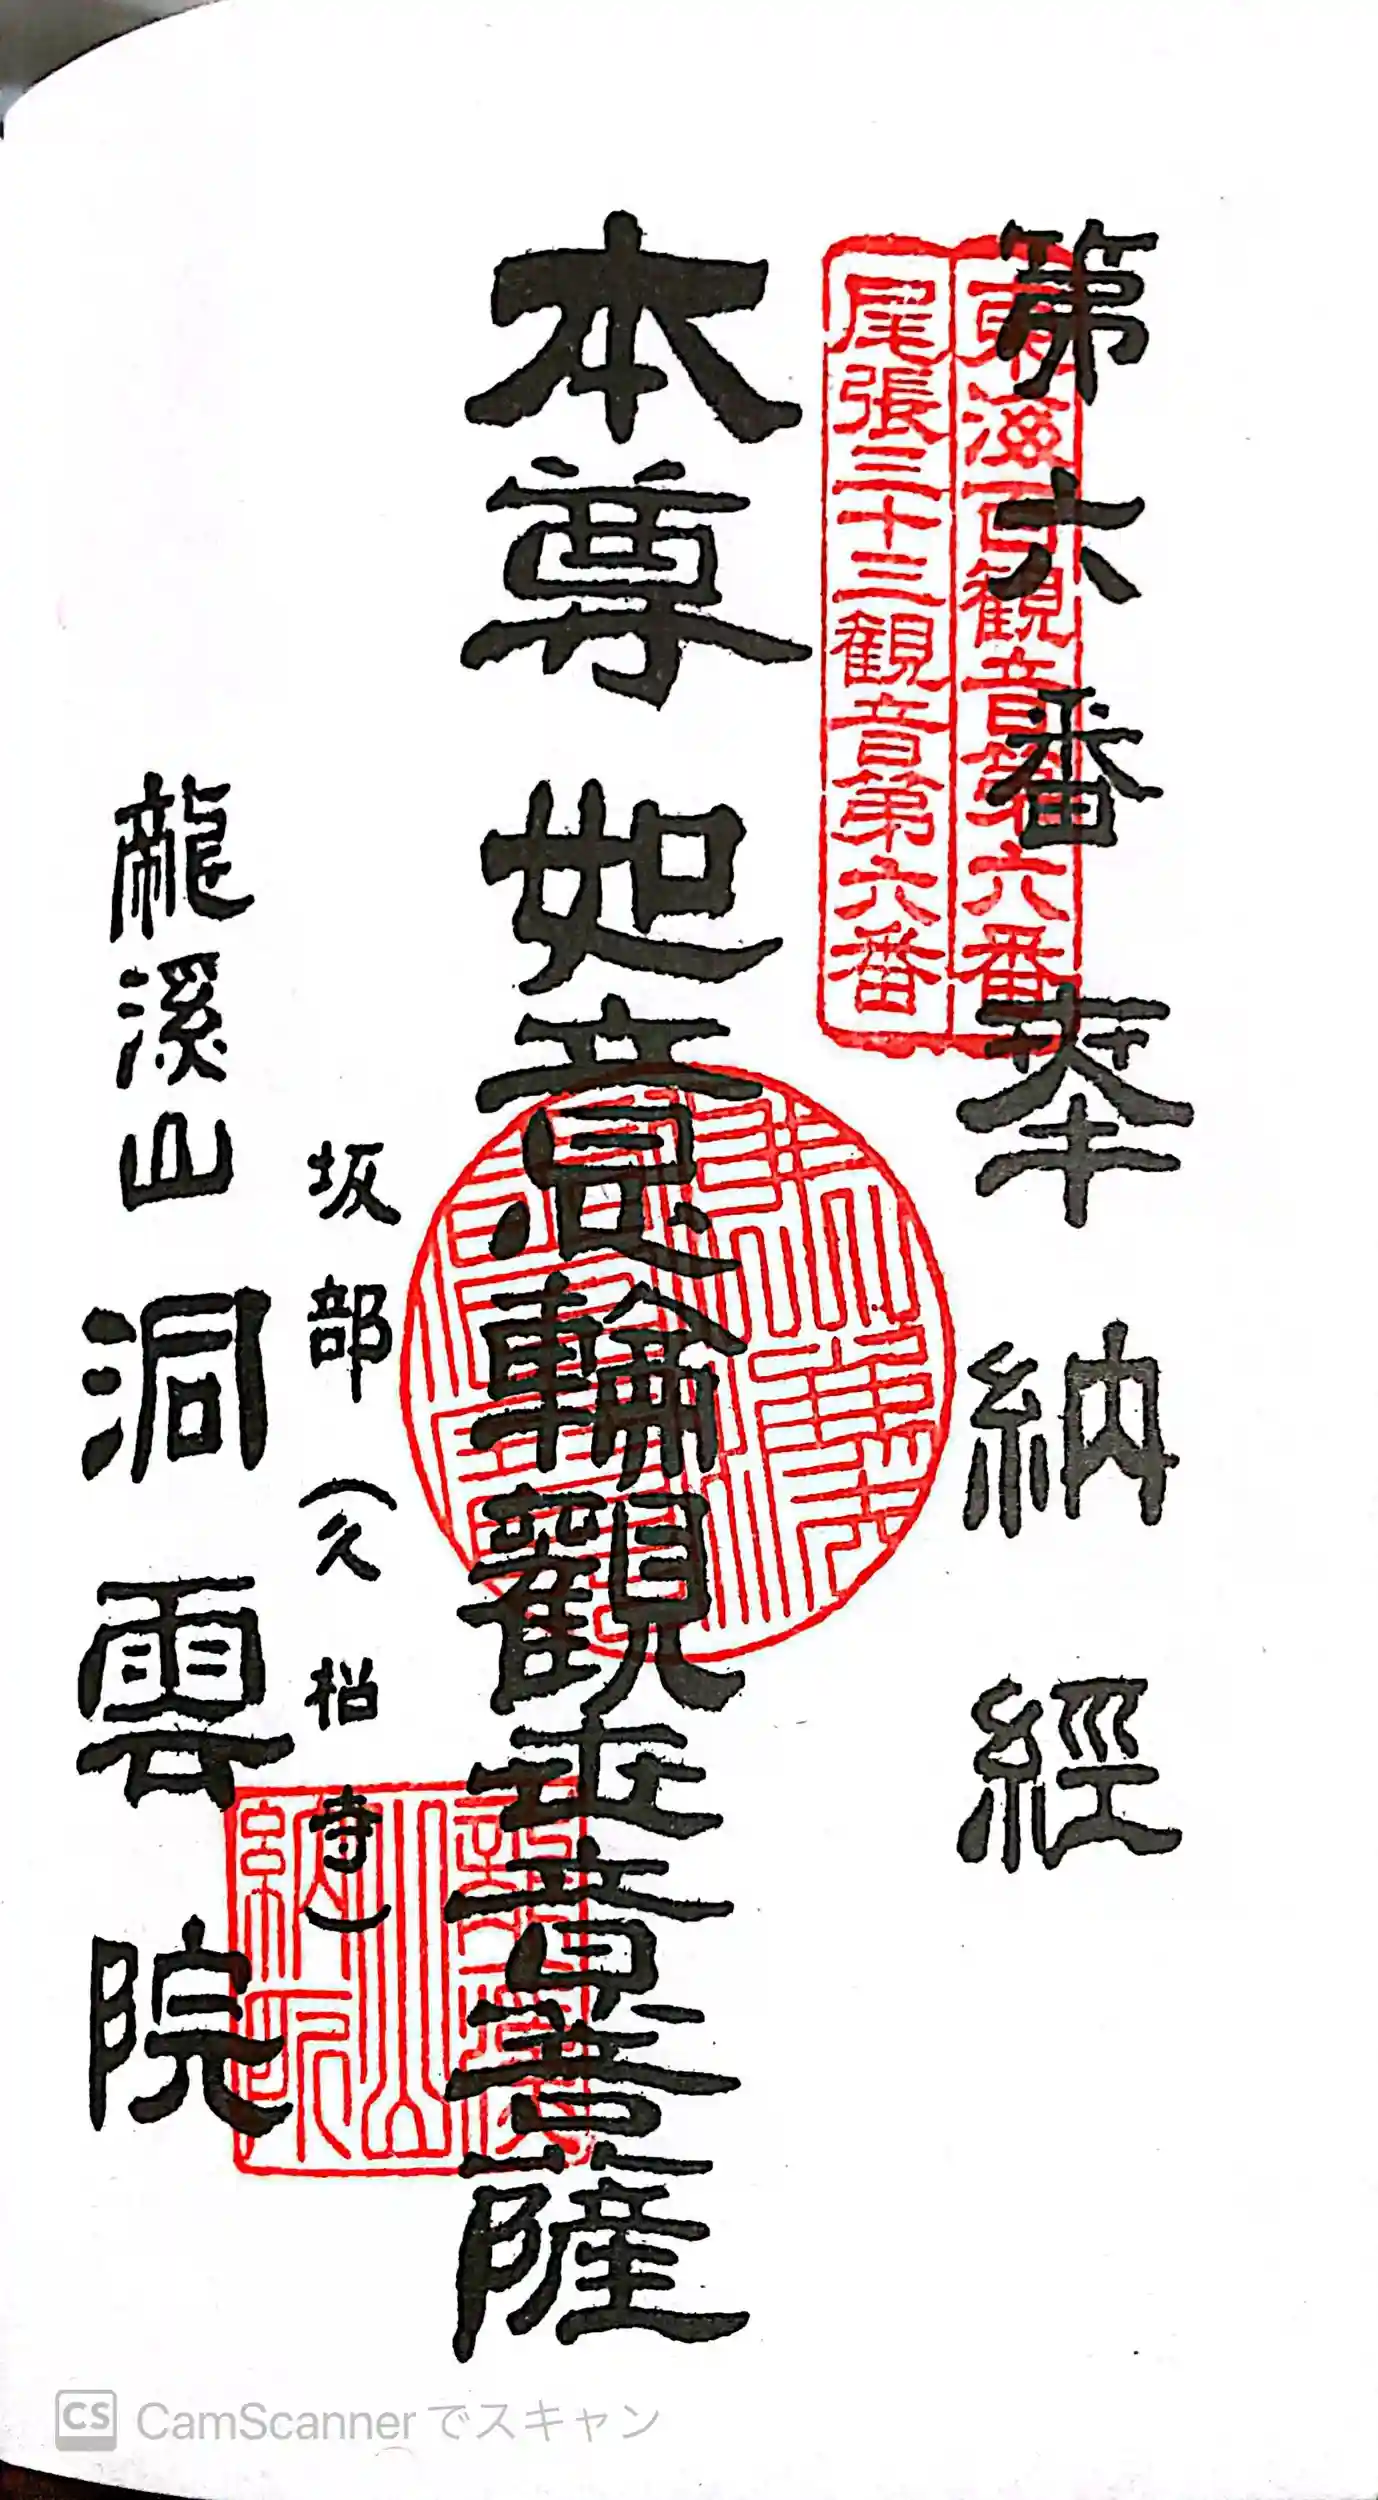 第六番奉納經
東海百観音第六番
尾張三十三観音第六番
本尊如意輪觀世音菩薩
坂部（久松寺）
龍溪山洞雲院
CS CamScanner でスキャン